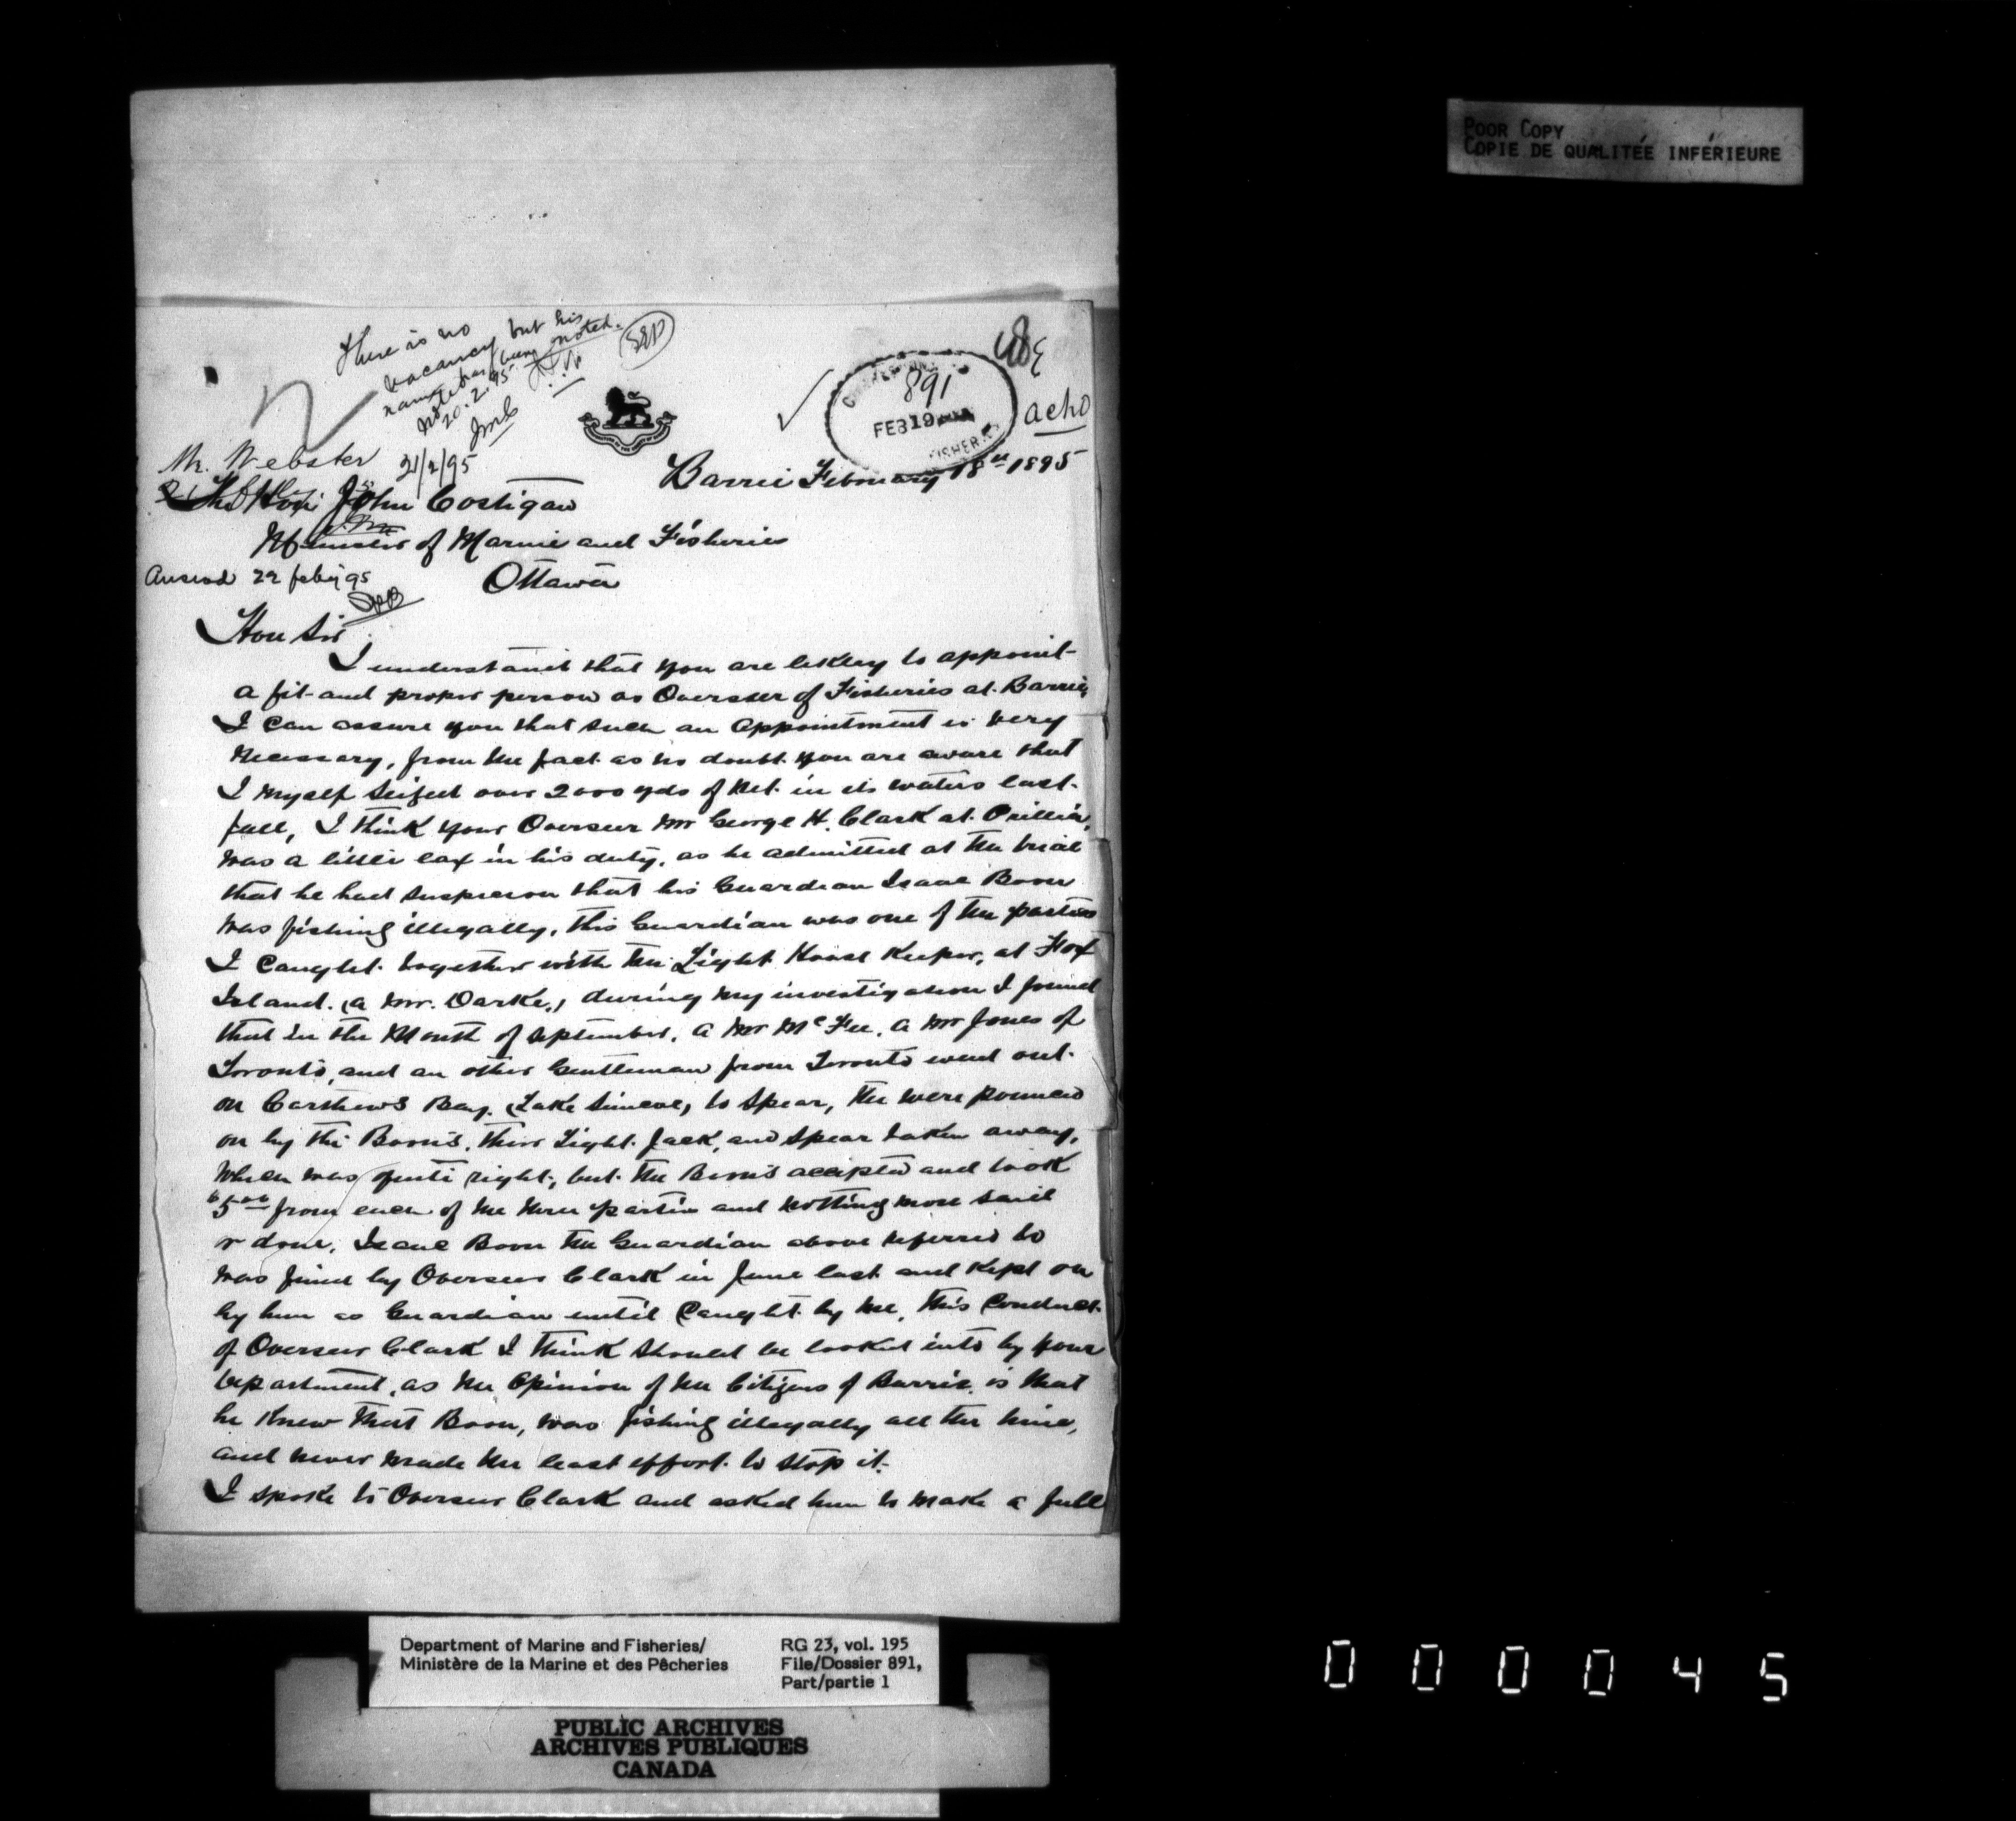 POOR COPY
COPIE DE QUALITÉE INFÉRIEURE
There is no
vacancy but his
name has been noted.
Noted
20.2.95
891
FEB 19
FISHER
Mr. Webster
21/2/95
Barrie February 18th 1895
The Hon John Costigan
Minister of Marine and Fisheries
Ottawa
Answd 22 feby 95
Hon Sir
I understand that you are likely to appoint
a fit and proper person as Overseer of Fisheries at Barrie,
I can assure you that such an appointment is very
necessary, from the fact as no doubt you are aware that
I myself seized over 2000 yds of net in its waters last
fall, I think your Overseer Mr George H. Clark at Orillia,
was a little lax in his duty, as he admitted at the trial
that he had suspicion that his Guardian Isaac Boon
was fishing illegally, this Guardian was one of the parties
I caught together with the Light House Keeper, at Fox
Island. (a Mr. Darke,) during my investigation I found
that in the Month of September, a Mr McFee, a Mr Jones of
Toronto, and an other Gentleman from Toronto went out
on Carthews Bay, (Lake Simcoe, to spear, the were pounced
on by the Boons, their Light Jack, and spear taken away,
which was quite right, but the Boons accepted and took
$5.00 from each of the three parties and nothing more said
or done, Isaac Boon the Guardian above referred to
was fined by Overseer Clark in June last and kept on
by him as Guardian until caught by me, this conduct
of Overseer Clark I think should be looked into by your
Department, as the opinion of the Citizens of Barrie is that
he knew that Boon, was fishing illegally all the time,
and never made the least effort to stop it.
I spoke to Overseer Clark and asked him to make a full
Department of Marine and Fisheries/
Ministère de la Marine et des Pêcheries
RG 23, vol. 195
File/Dossier 891,
Part/partie 1
PUBLIC ARCHIVES
ARCHIVES PUBLIQUES
CANADA
000045